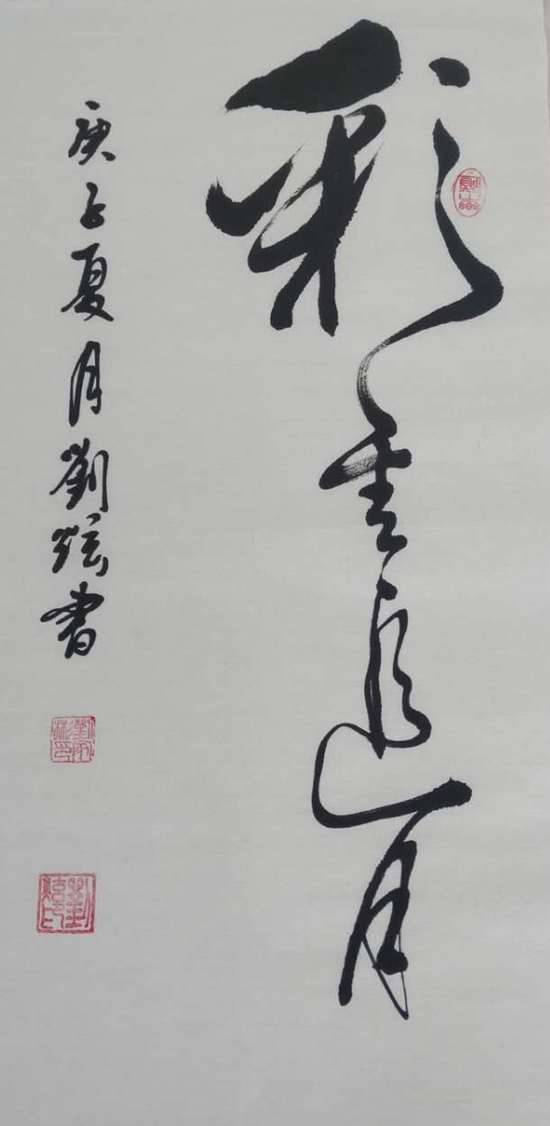 彩云追月
庚子夏月劉炫書